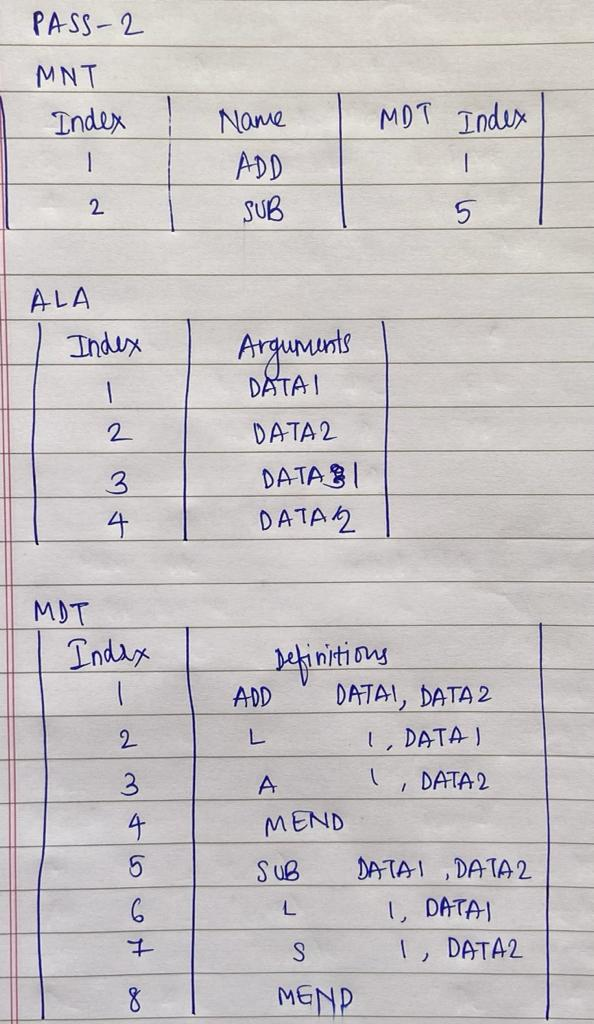 PASS-2
MNT
Index Name MDT Index
1 ADD 1
2 SUB 5
ALA
Index Arguments
1 DATA1
2 DATA2
3 DATA1
4 DATA2
MDT
Index Definitions
1 ADD DATA1, DATA2
2 L 1, DATA1
3 A 1, DATA2
4 MEND
5 SUB DATA1, DATA2
6 L 1, DATA1
7 S 1, DATA2
8 MEND